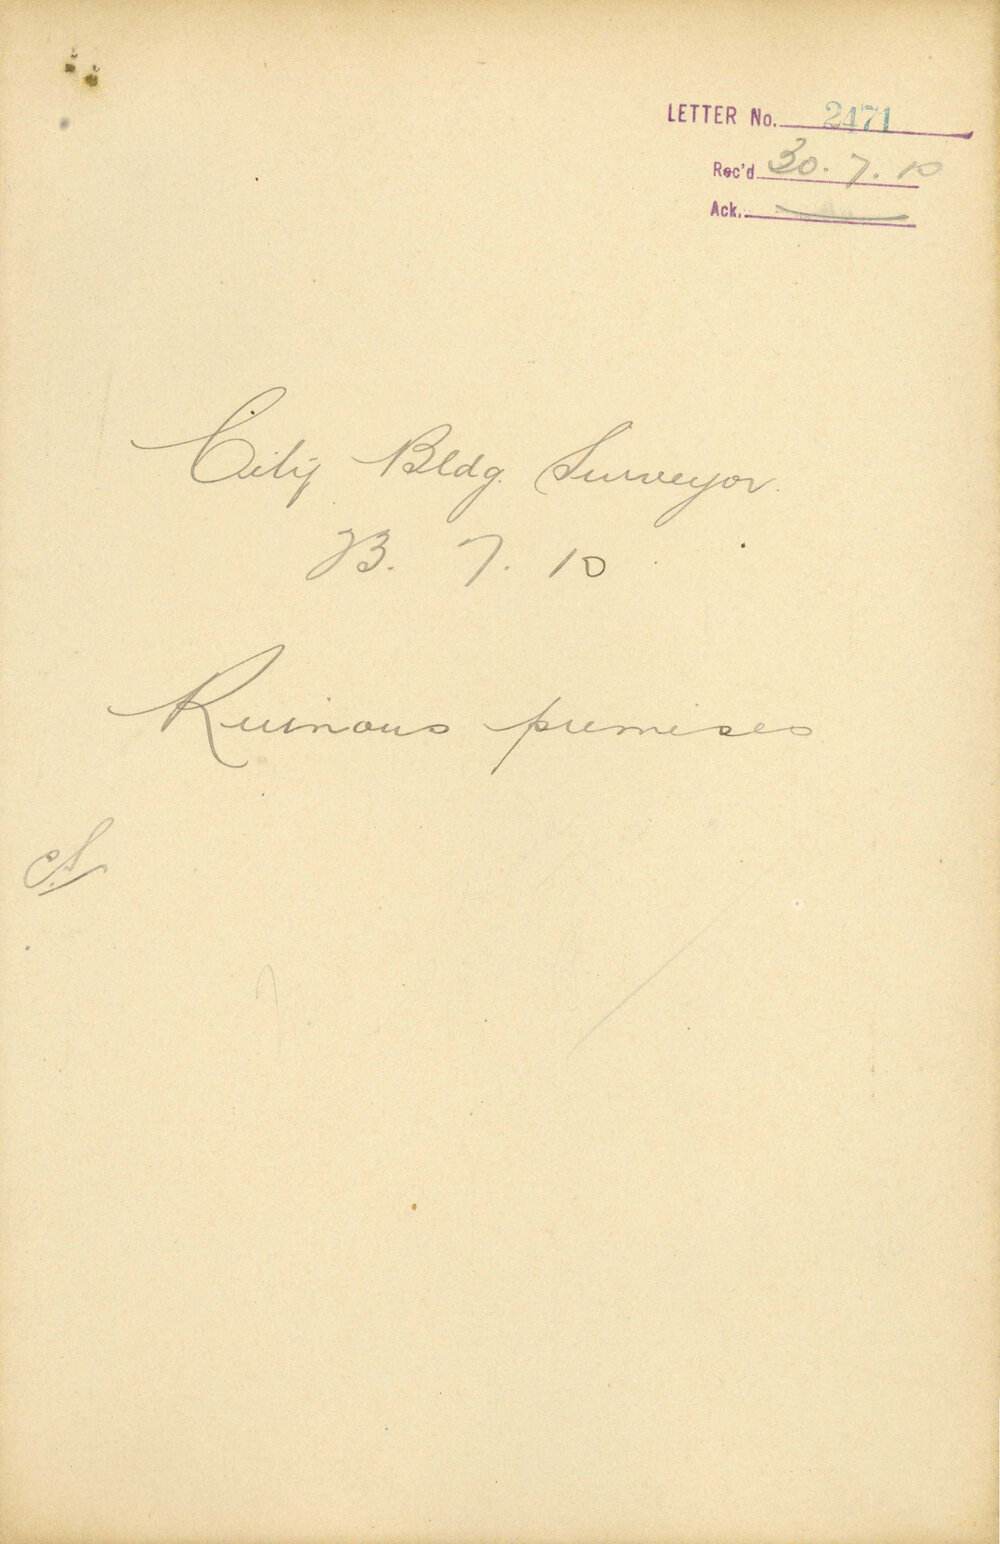 LETTER No. 2471
Rec'd 30. 7. 10
Ack.
City Bldg. Surveyor.
23. 7. 10
Ruinous premises